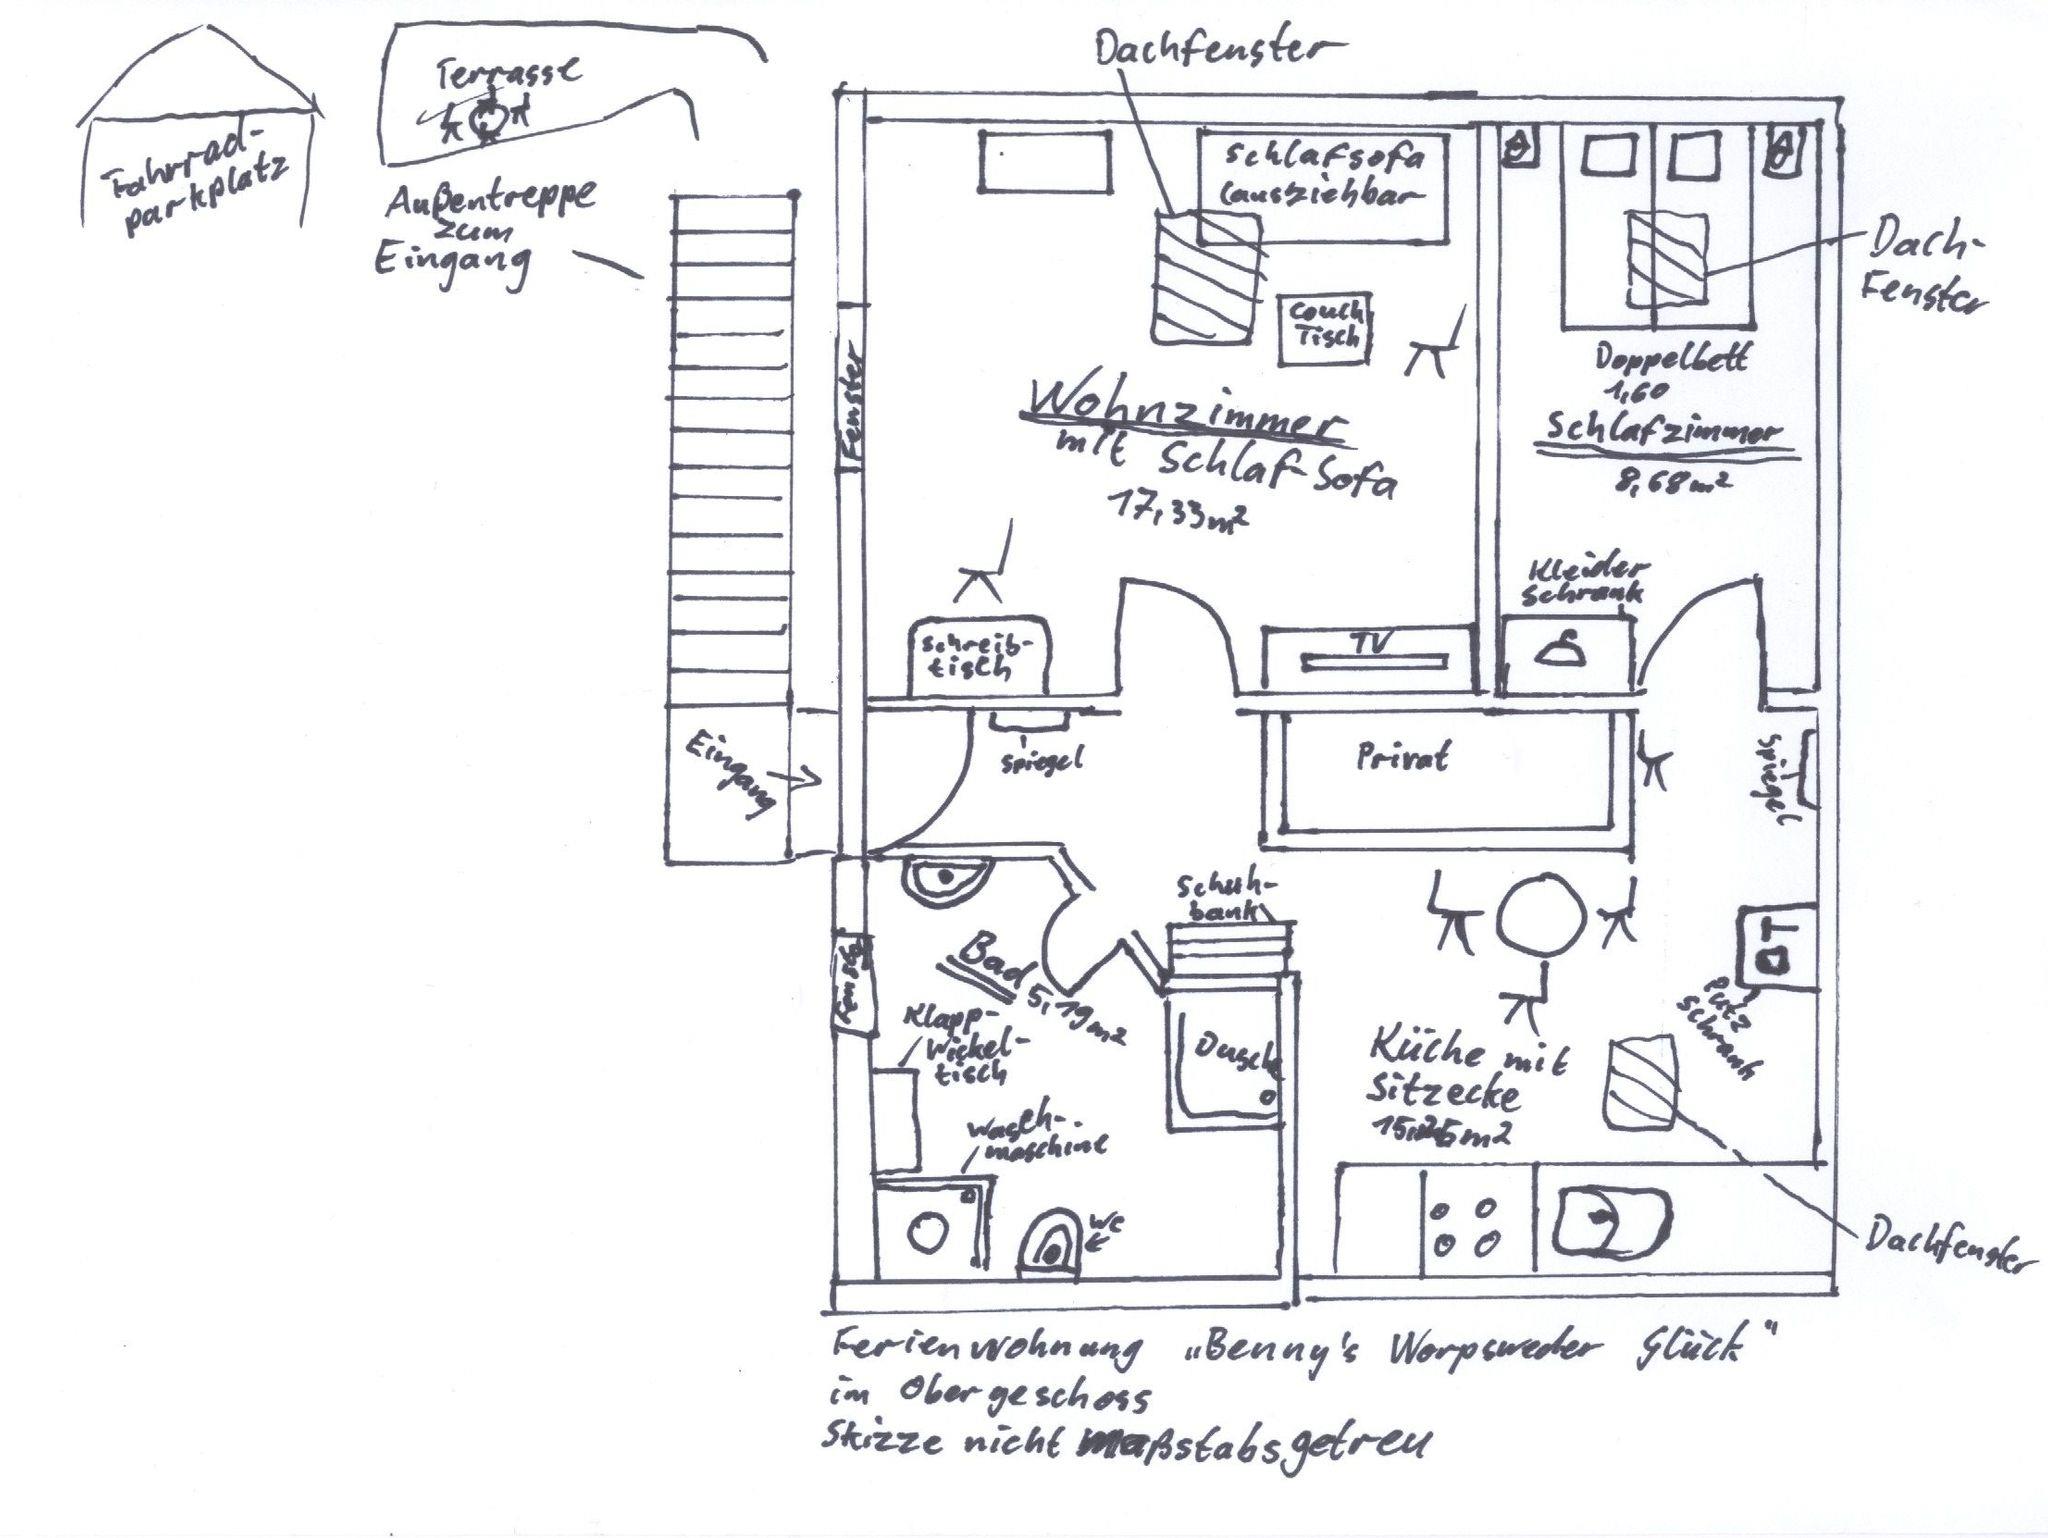 Dachfenster
Terrasse
Fahrrad-
parkplatz
Außentreppe
zum
Eingang
Schlafsofa
(ausziehbar
Dach-
Fenster
Couch
Tisch
Fenster
Doppelbett
1,60
Schlafzimmer
8,68m²
Wohnzimmer
mit Schlaf-Sofa
17,33m²
Kleider
schrank
Schreib-
tisch
TV
Eingang
Spiegel
Privat
Spiegel
Schuh-
bank
Bad
5,19m²
Klapp-
Wickel-
tisch
Dusche
Putz
schrank
Küche mit
Sitzecke
Wasch-
maschine
WC
Dachfenster
Ferienwohnung „Benny's Worpsweder Glück"
im Obergeschoss
Skizze nicht maßstabsgetreu